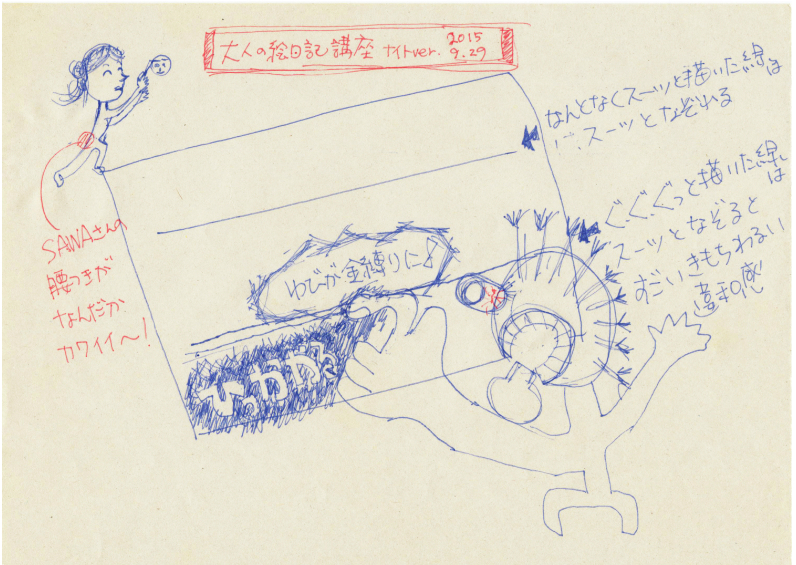 大人の絵日記講座 ナイトver. 2015 9.29
なんとなくスーッと描いた線は
スーッとなぞれる
ぐ、ぐ、ぐっと描いた線は
スーッとなぞると
すごいきもちわるい
違和感
ゆびが金縛りに!
SAWAさんの
腰つきが
なんだか
カワイイ〜!
ひっかかる